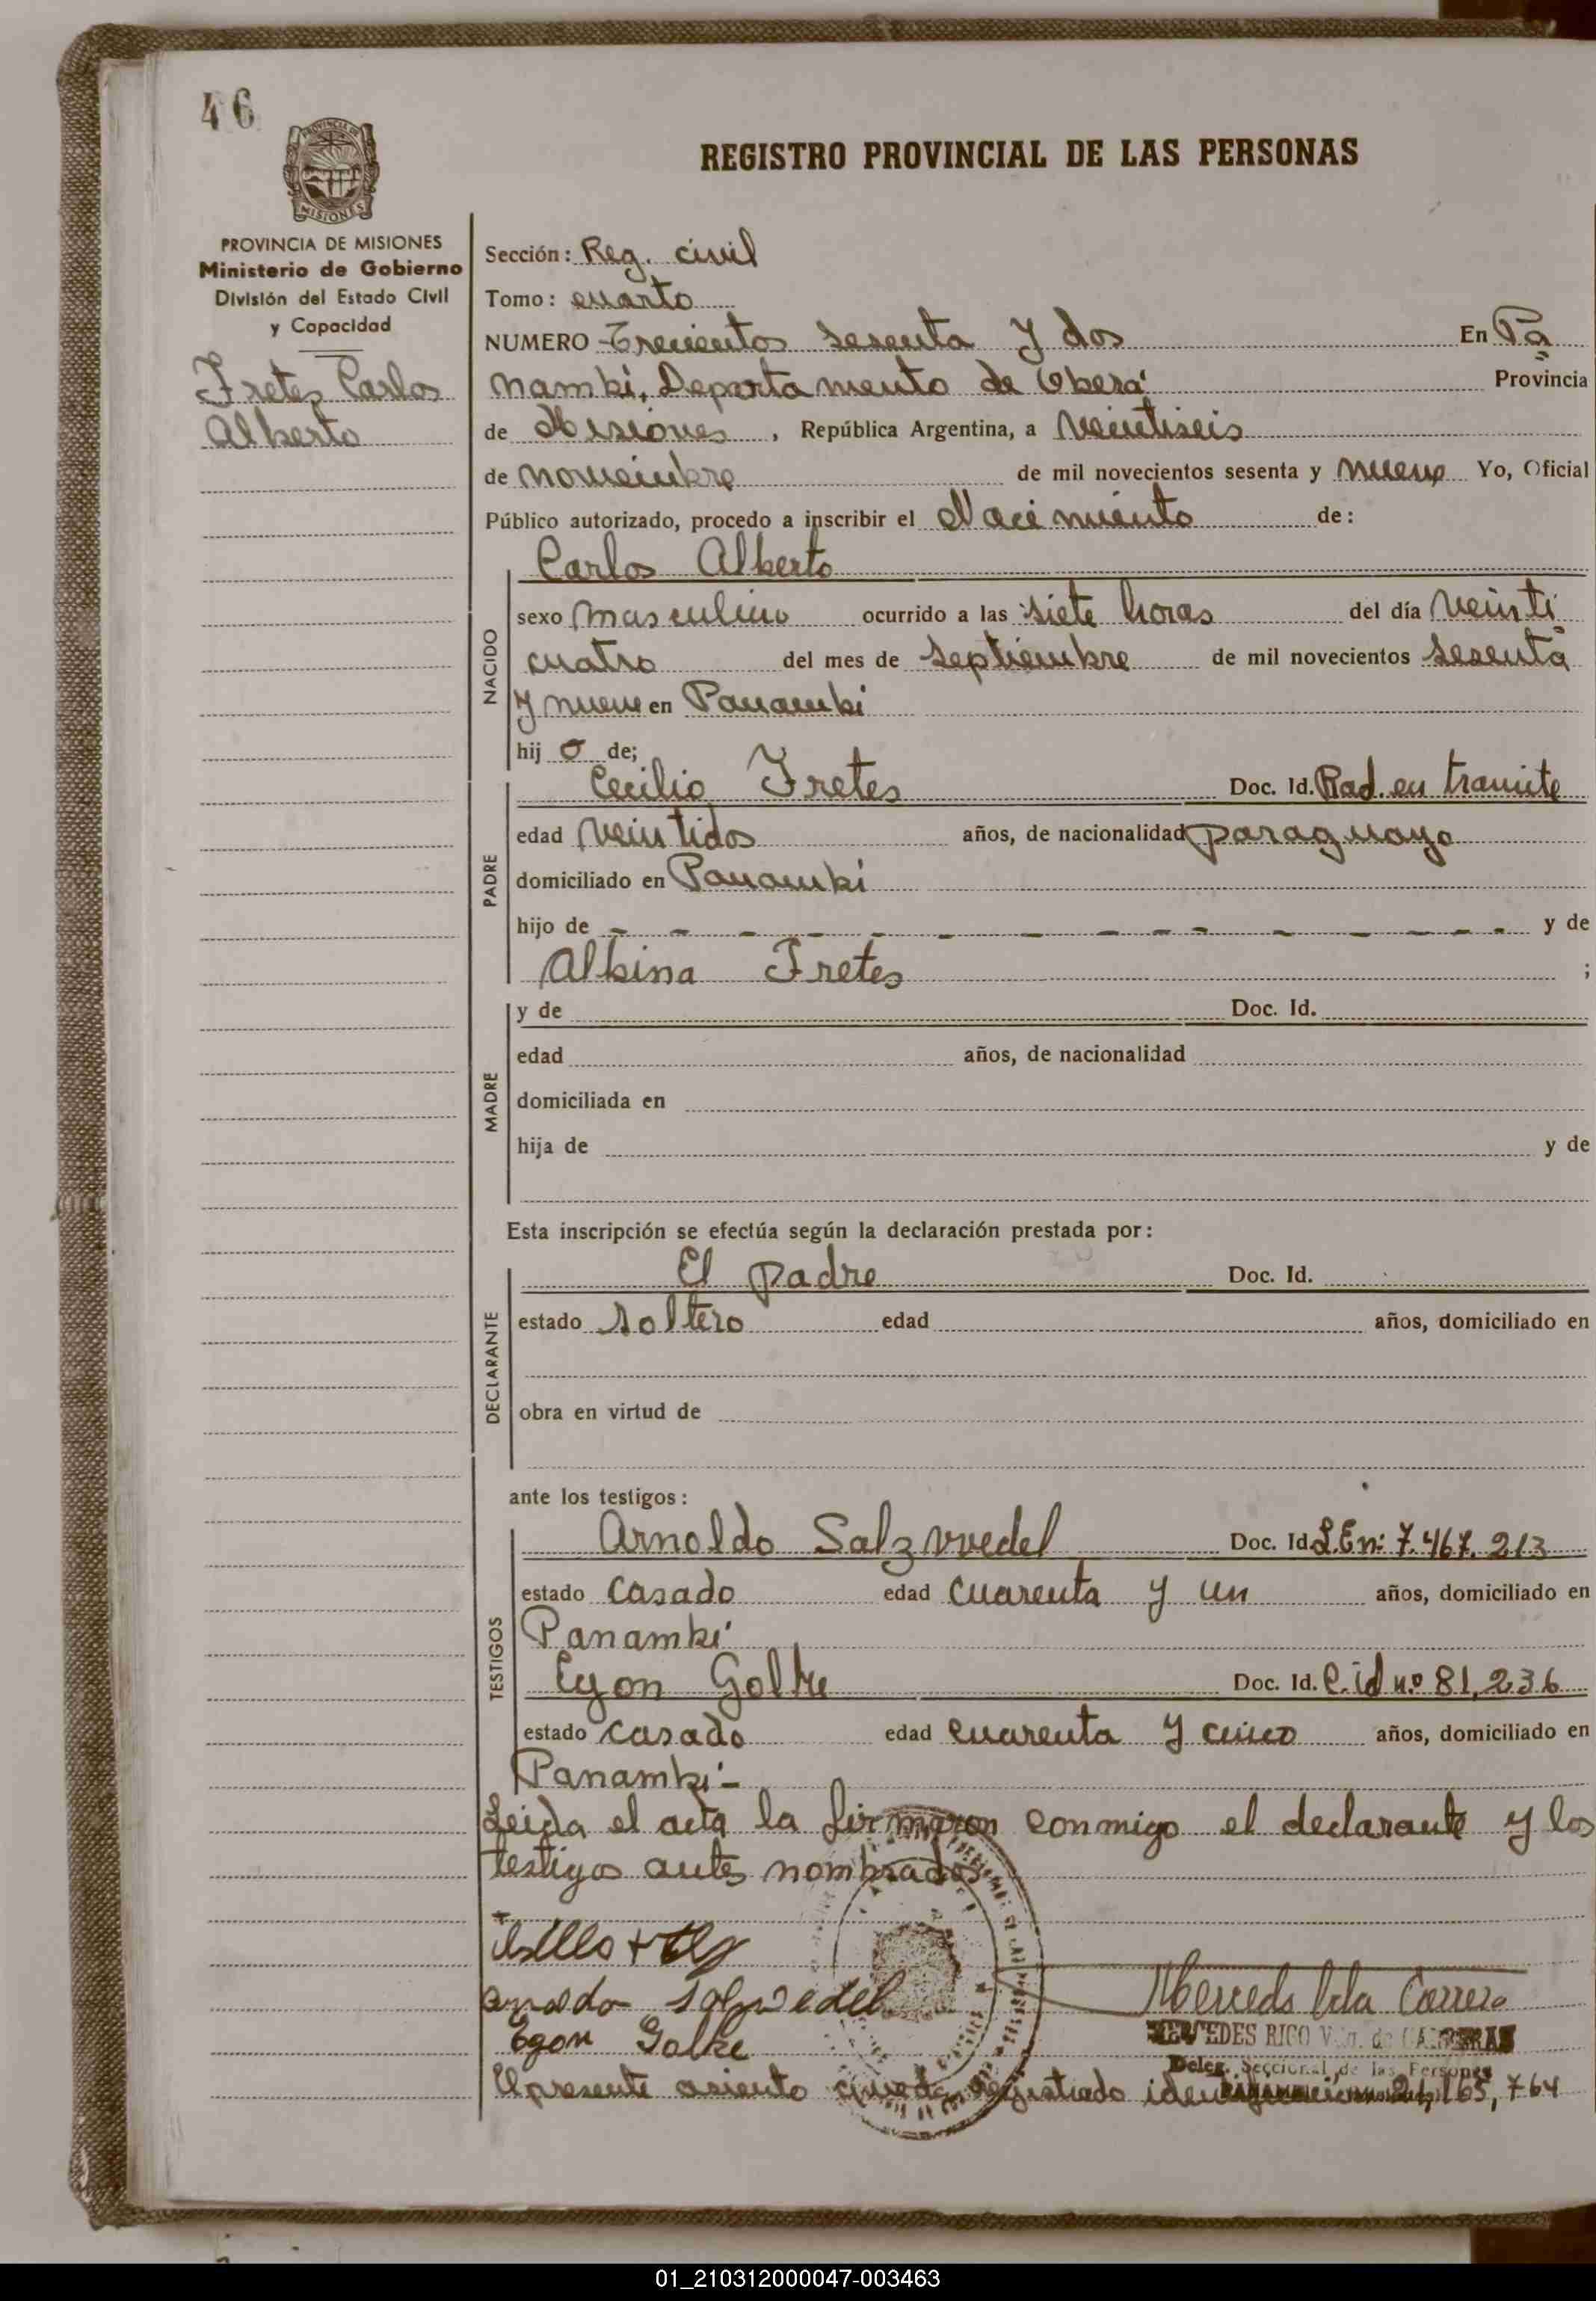 46
PROVINCIA DE
MISIONES
REGISTRO PROVINCIAL DE LAS PERSONAS
PROVINCIA DE MISIONES
Ministerio de Gobierno
División del Estado Civil
y Capacidad
Fretes Carlos
Alberto
Sección: Reg. civil
Tomo: cuarto
NUMERO Trecientos sesenta y dos En Pa
nambi, Departamento de Oberá Provincia
de Misiones, República Argentina, a veintiseis
de noviembre de mil novecientos sesenta y nueve Yo, Oficial
Público autorizado, procedo a inscribir el Nacimiento de:
NACIDO
Carlos Alberto
sexo masculino ocurrido a las siete horas del día veinti
cuatro del mes de septiembre de mil novecientos sesenta
y nueve en Panambi
hij o de;
PADRE
Cecilio Fretes Doc. Id. Rad. en tramite
edad veintidos años, de nacionalidad paraguayo
domiciliado en Panambi
hijo de - - - - - - - - - - - - - - y de
Albina Fretes ;
MADRE
y de Doc. Id.
edad años, de nacionalidad
domiciliada en
hija de y de
Esta inscripción se efectúa según la declaración prestada por:
DECLARANTE
El padre Doc. Id.
estado soltero edad años, domiciliado en
obra en virtud de
ante los testigos:
TESTIGOS
Arnoldo Salzwedel Doc. Id. L.E nº 7.467.213
estado casado edad cuarenta y un años, domiciliado en
Panambí
Egon Golke Doc. Id. C. id nº 81,236
estado casado edad cuarenta y cinco años, domiciliado en
Panambí-
Leida el acta la firmaron conmigo el declarante y los
testigos antes nombrados
Arnoldo Salzwedel
Egon Golke
MERCEDES RICO Vda. de CARRERAS
Deleg. Seccional de las Personas
El presente asiento queda registrado 21,165,764
01_210312000047-003463